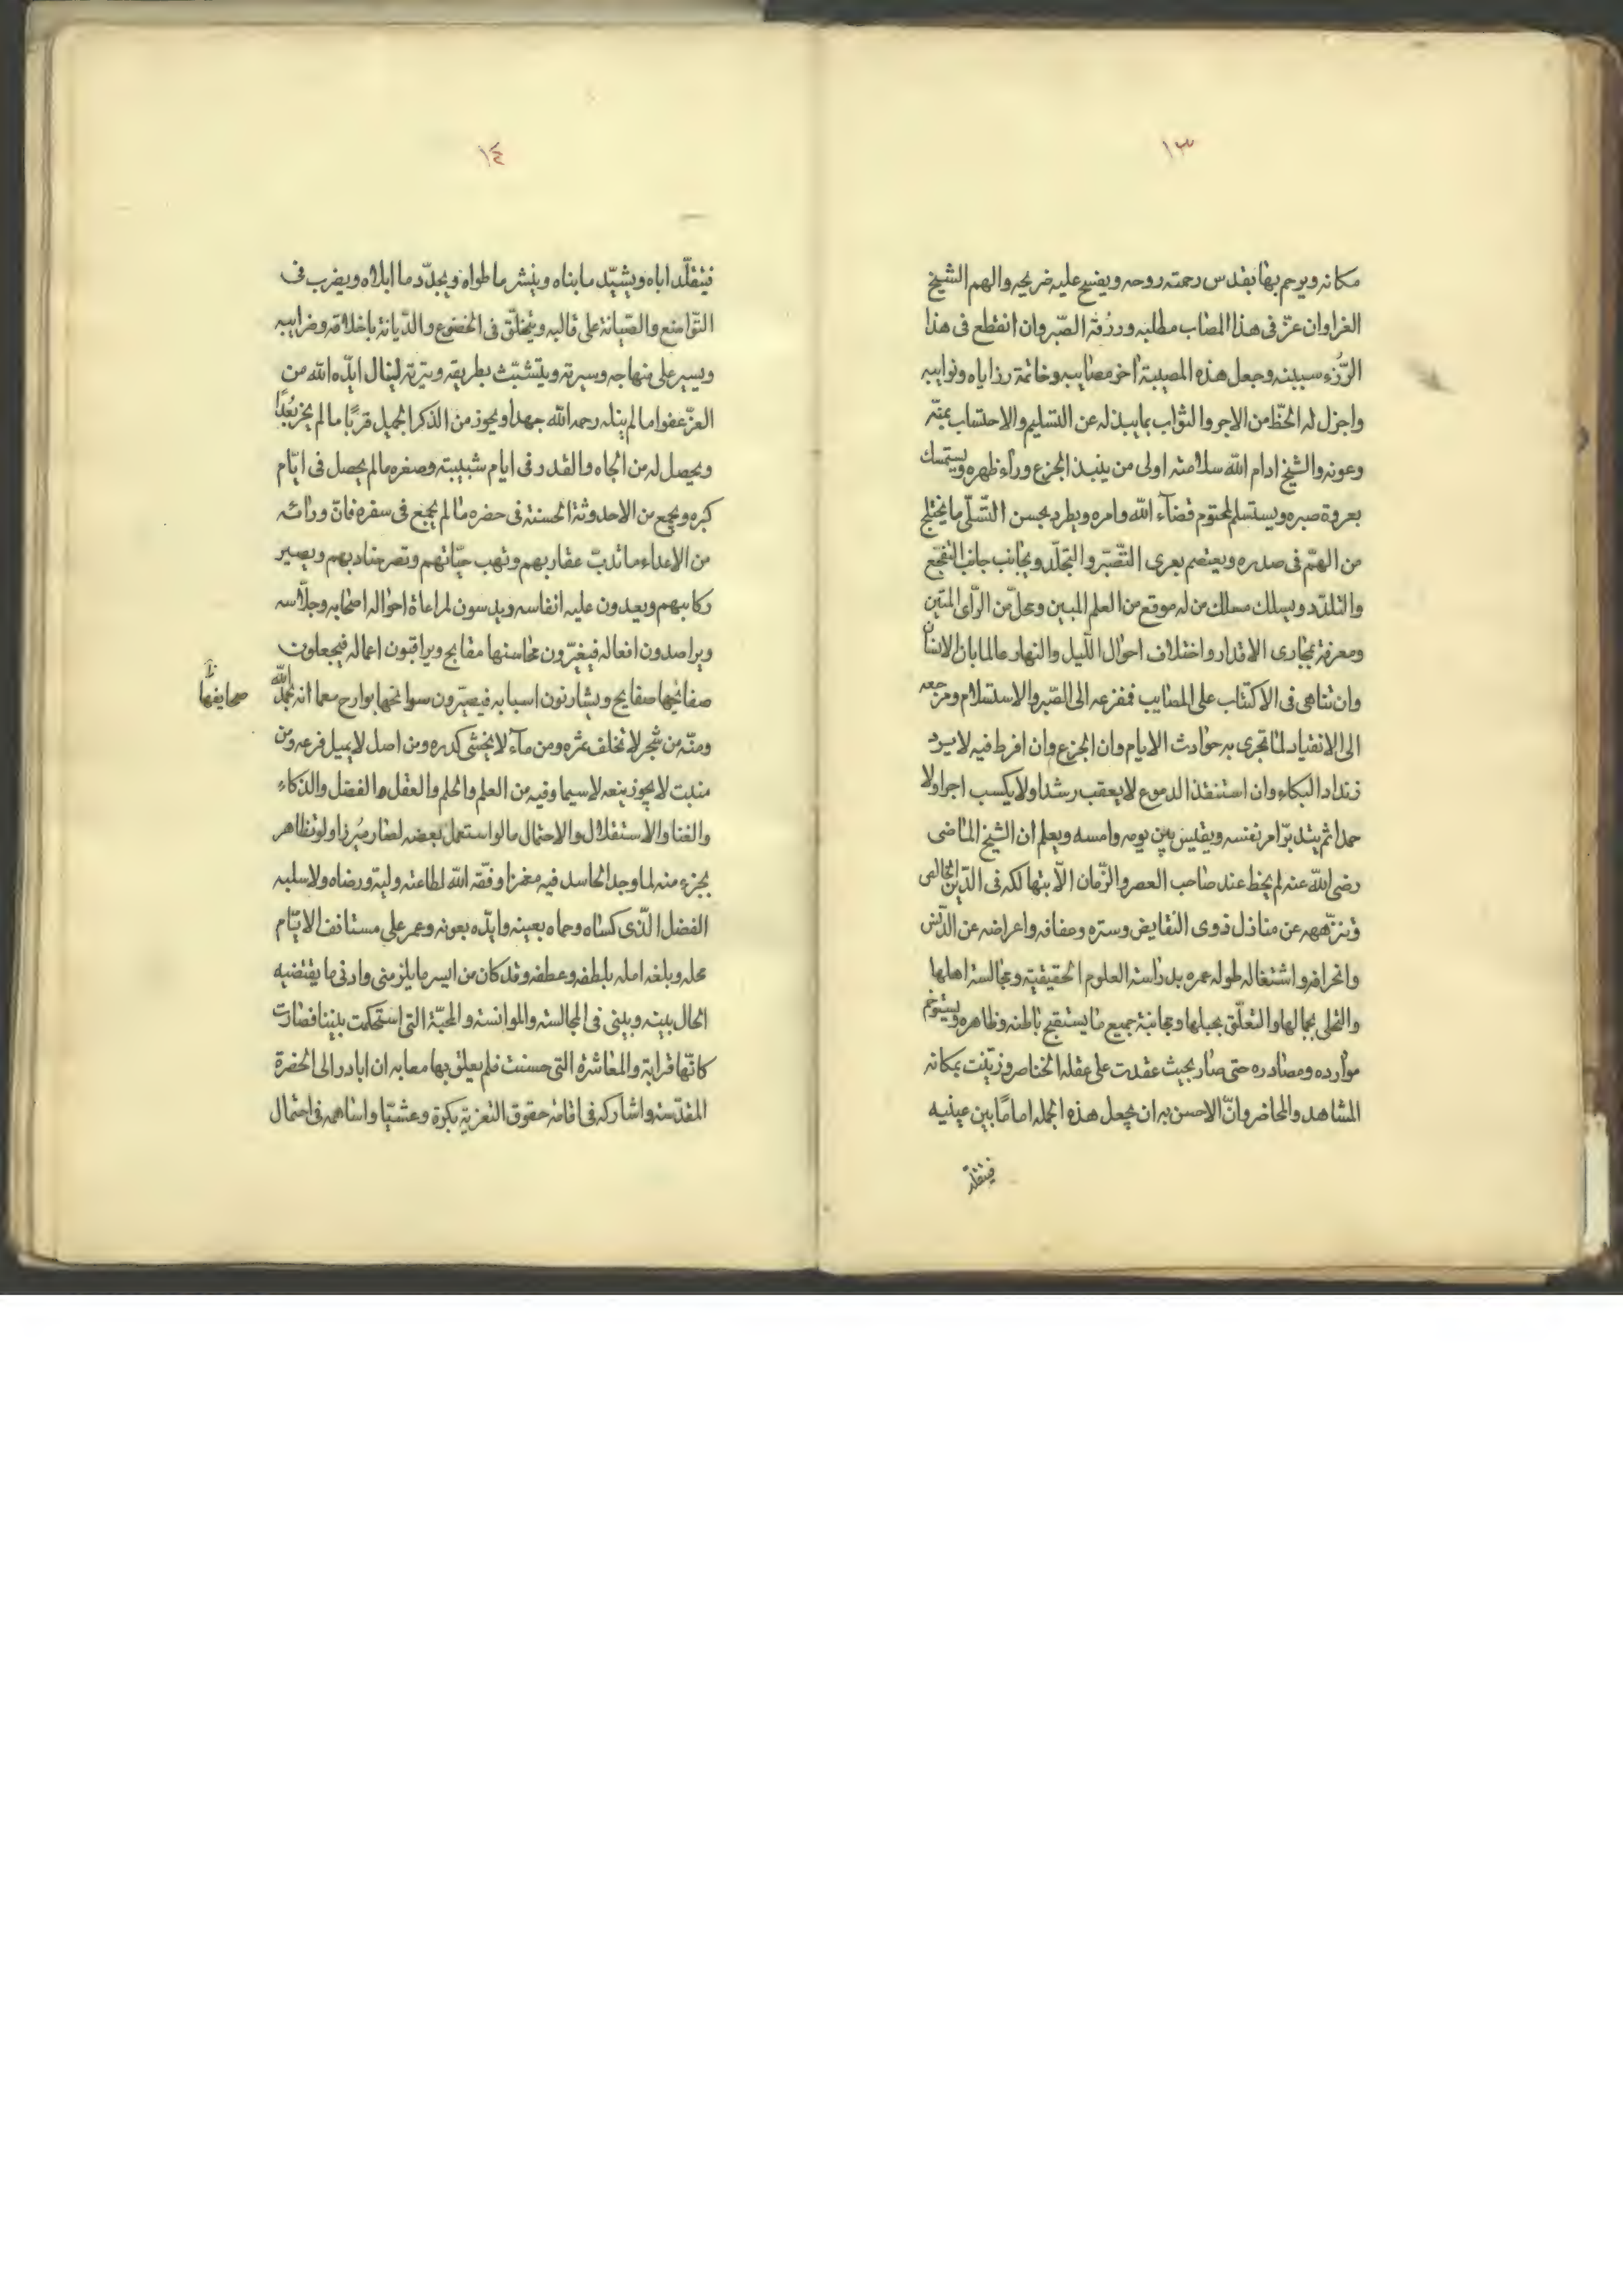 ١٣
مكانه ويرحم بها بقدس رحمته روحه ويفسح عليه ضريحه والهم الشيخ
العزا وان عزّ فى هذا المصاب مطلبه ورزقه الصّبر وان انقطع فى هذا
الرّزء سببه وجعل هذه المصيبة اخر مصايبه وخاتمة رزاياه ونوايبه
واجزل له الحظّ من الاجر والثواب بما يبذله عن التسليم والاحتساب بمنّه
وعونه والشيخ ادام الله سلامته اولى من ينبذ الجزع ورآء ظهره ويستمسك
بعروة صبره ويستسلم لمحتوم قضآء الله وامره ويطرد بحسن التسّلّى ما يختلج
من الهمّ فى صدره ويعتصم بعرى التّصّبر والتجلّد ويجانب جانب التفجّع
والتلدّد ويسلك مسلك من له موقع من العلم المبين ومحلّ من الرّأى المتين
ومعرفة بمجارى الاقدار واختلاف احوال الليل والنهار عالما بان الانسان
وان تناهى فى الاكتئاب على المصايب فمفزعه الى الصّبر والاستسلام ومرجعه
الى الانقياد لما تجرى به حوادث الايام وان الجزع وان افرط فيه لا يرد
البكاء وان استنفذ الدموع لا يعقب رشدا ولا يكسب اجرا ولا
حمدا ثم يتدبّر امر نفسه ويقيس بين يومه وامسه ويعلم ان الشيخ الماضى
رضى الله عنه لم يحظ عند صاحب العصر والزّمان الّا بتهالكه فى الدّين الخالص
وتنزّهه عن منازل ذوى النقايض وستره وعفافه واعراضه عن الدّنس
وانحرافه واشتغاله طوله عمره بدراسة العلوم الحقيقيّة ومجالسة اهلها
والتحلى بجمالها والتعلّق بحبلها ومجانبة جميع ما يستقبح باطنه وظاهره ويستوخم
موارده ومصادره حتى صار بحيث عقدت على عقله الخناصر وزيّنت بمكانه
المشاهد والمحاضر وانّ الاحسن به ان يجعل هذه الجمله امامًا بين عينيه
فيتقلّد
١٤
فيتقلّد اباه ويشيّد ما بناه وينشر ما طواه ويجدّد ما ابلاه ويضرب فى
التّواضع والصّيانة على قالبه ويتخلّق فى الخضوع والدّيانة باخلاقه وضرايبه
ويسير على منهاجه وسيرته ويتشبّث بطريقه ووتيرته لينال ايّده الله من
العزّ عفوا ما لم ينله رحمه الله جهدا ويحوز من الذكر الجميل قربًا ما لم يحز بُعدًا
ويحصل له من الجاه والقدر فى ايام شبيبته وصغره ما لم يحصل فى ايّام
كبره ويجمع من الاحدوثة الحسنة فى حضره ما لم يجمع فى سفره فانّ ورائه
من الاعداء ما تدبّ عقاربهم وتهب حيّاتهم وتصر جنادبهم ويصير
ركابهم ويعدون عليه انفاسه ويدسون لمراعاة احواله اصحابه وجلّاسه
ويراصدون افعاله فيغيّرون محاسنها مقابح ويراقبون اعماله فيجعلون
صفائحها صفايح ويشارنون اسبابه فيصيّرون سوانحها بوارح معما انه بحمد الله
صحايفها
ومنّه من شجر لا تخلف ثمره ومن مآء لا يخشى كدره ومن اصل لا يميل فرعه ومن
منبت لا يجوز ينعه لا سيما وفيه من العلم والحلم والعقل والفضل والذكاء
والغنا والاستقلال والاحتمال ما لو استعمل بعضه لصار مُبرزا ولو تظاهر
بجزء منه لما وجد الحاسد فيه مغمزا وفقه الله لطاعته وليه ورضاه ولا سلبه
الفضل الّذى كساه وحماه بعينه وايّده بعونه وعمر على مستانف الايّام
محله وبلغه امله بلطفه وعطفه وقد كان من ايسر ما يلزمنى وادنى ما يقتضيه
الحال بينه وبينى فى المجالسة والموانسة والمحبّة التى استحكمت بيننا فصارت
كانّها قرابة والمعاشرة التى حسنت فلم يعلق بها معابه ان ابادر الى الحضرة
المقدّسة واشاركه فى اقامة حقوق التعزية بكرة وعشيّا واساهمه فى احتمال